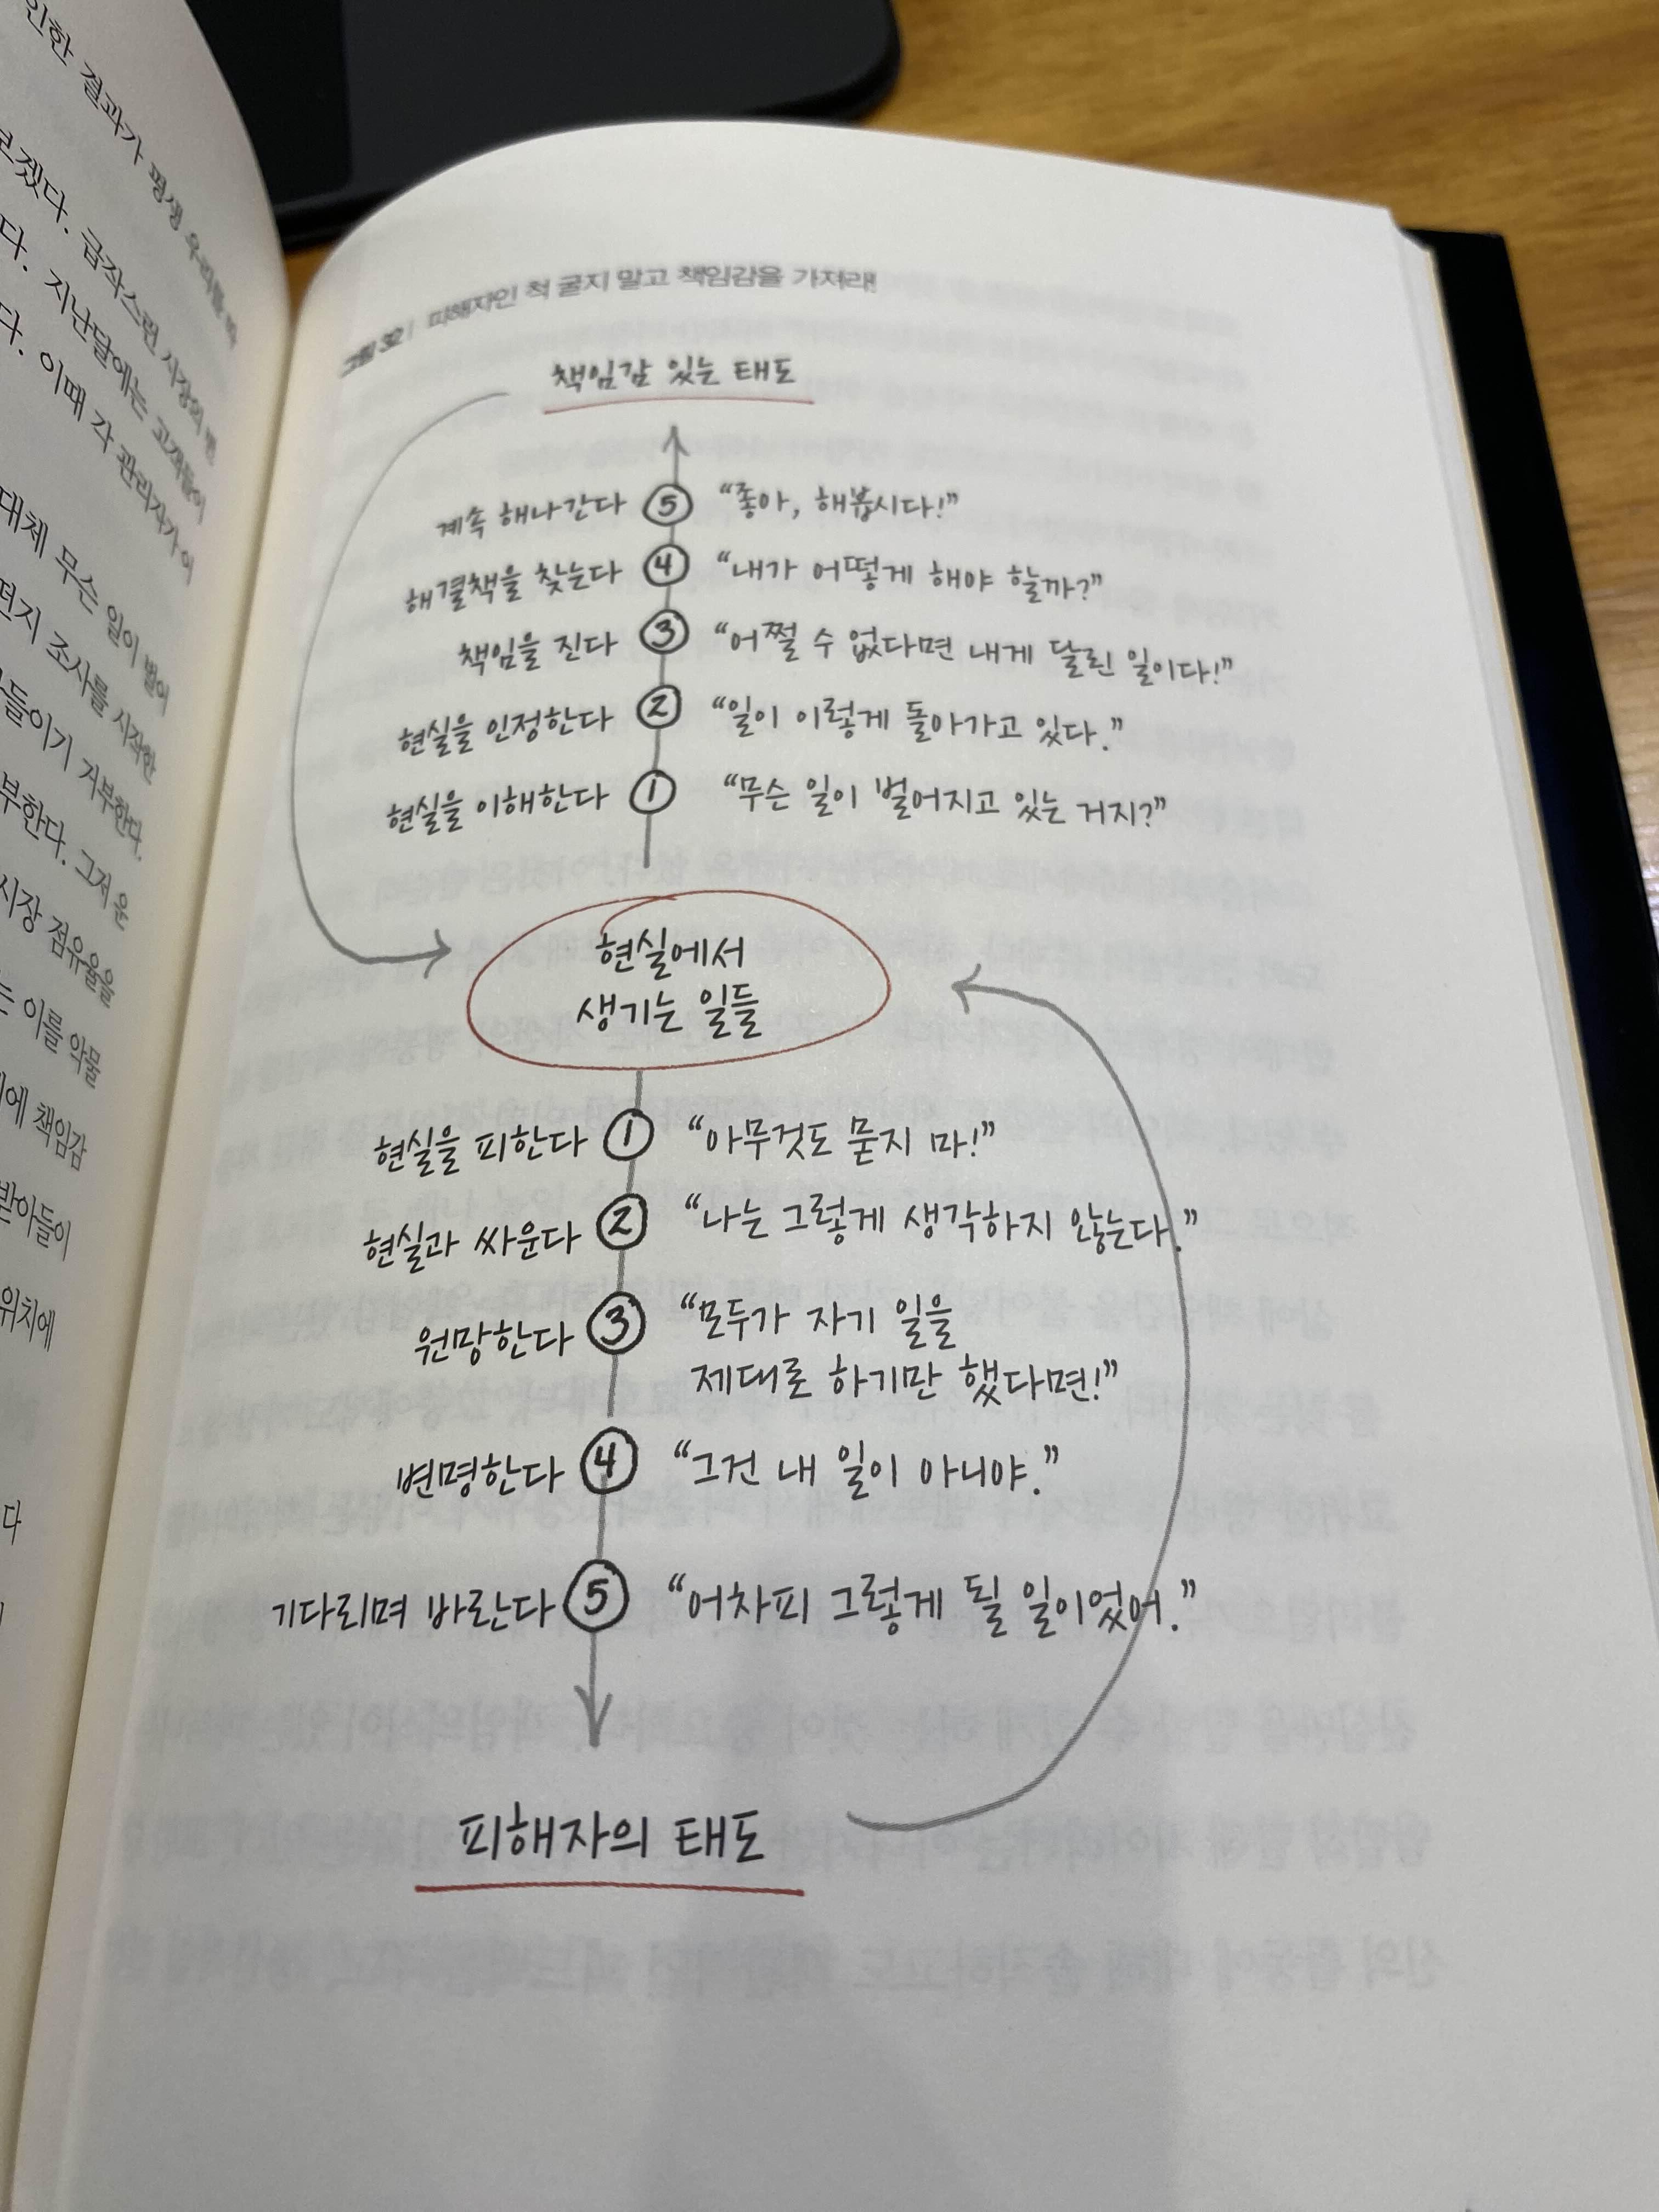 인한 결과가 평생 우리를
겠다. 급작스런 시장의
다. 지난달에는 고객들이
다. 이때 각 관리자가 이
대체 무슨 일이 벌어
먼지 조사를 시작한
들이기 거부한다.
부한다. 그저 운
시장 점유율을
는 이를 악물
에 책임감
받아들이
위치에
다
그림 32 | 피해자인 척 굴지 말고 책임감을 가져라!
책임감 있는 태도
계속 해나간다 ⑤ “좋아, 해봅시다!”
해결책을 찾는다 ④ “내가 어떻게 해야 할까?”
책임을 진다 ③ “어쩔 수 없다면 내게 달린 일이다!”
현실을 인정한다 ② “일이 이렇게 돌아가고 있다.”
현실을 이해한다 ① “무슨 일이 벌어지고 있는 거지?”
현실에서
생기는 일들
현실을 피한다 ① “아무것도 묻지 마!”
현실과 싸운다 ② “나는 그렇게 생각하지 않는다.”
원망한다 ③ “모두가 자기 일을
제대로 하기만 했다면!”
변명한다 ④ “그건 내 일이 아니야.”
기다리며 바란다 ⑤ “어차피 그렇게 될 일이었어.”
피해자의 태도